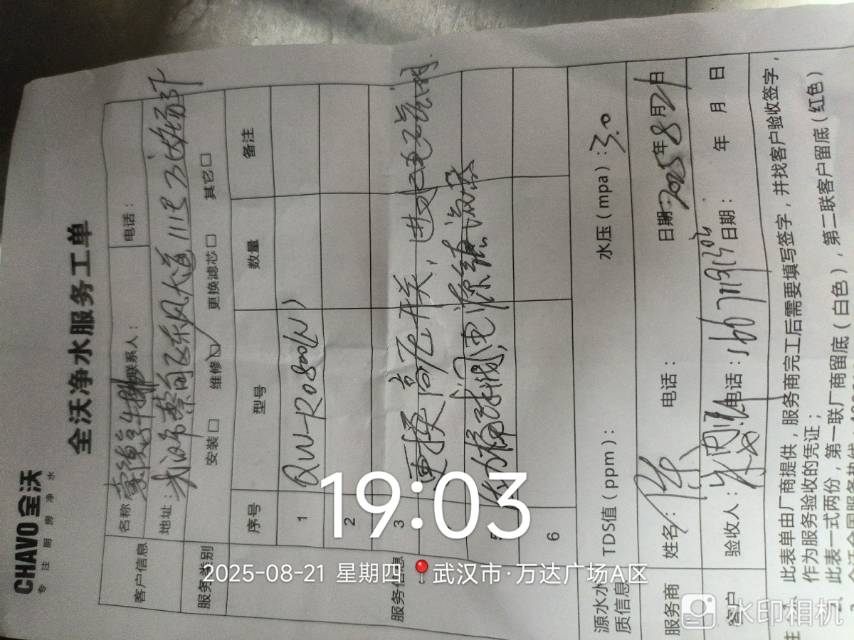 CHAVO全沃
专注厨房净水
全沃净水服务工单
客户信息 名称: 联系人: 电话:
地址: 武汉市蔡甸区东风大道111号万达广场3F
服务类别 安装□ 维修☑ 更换滤芯□ 其它□
服务信息 序号 型号 数量 备注
1 QW-RO800(N)
2
3 更换高压开关, 进水电磁阀
5
6
源水水质信息 TDS值(ppm): 水压(mpa):3.0
服务商 姓名: 陈 电话: 日期: 2025年8月21日
客户 验收人: 电话: 日期: 年 月 日
注 1、此表单由厂商提供,服务商完工后需要填写签字,并找客户验收签字,
作为服务验收的凭证;
2、此表一式两份,第一联厂商留底(白色),第二联客户留底(红色)
19:03
2025-08-21 星期四 武汉市·万达广场A区
水印相机